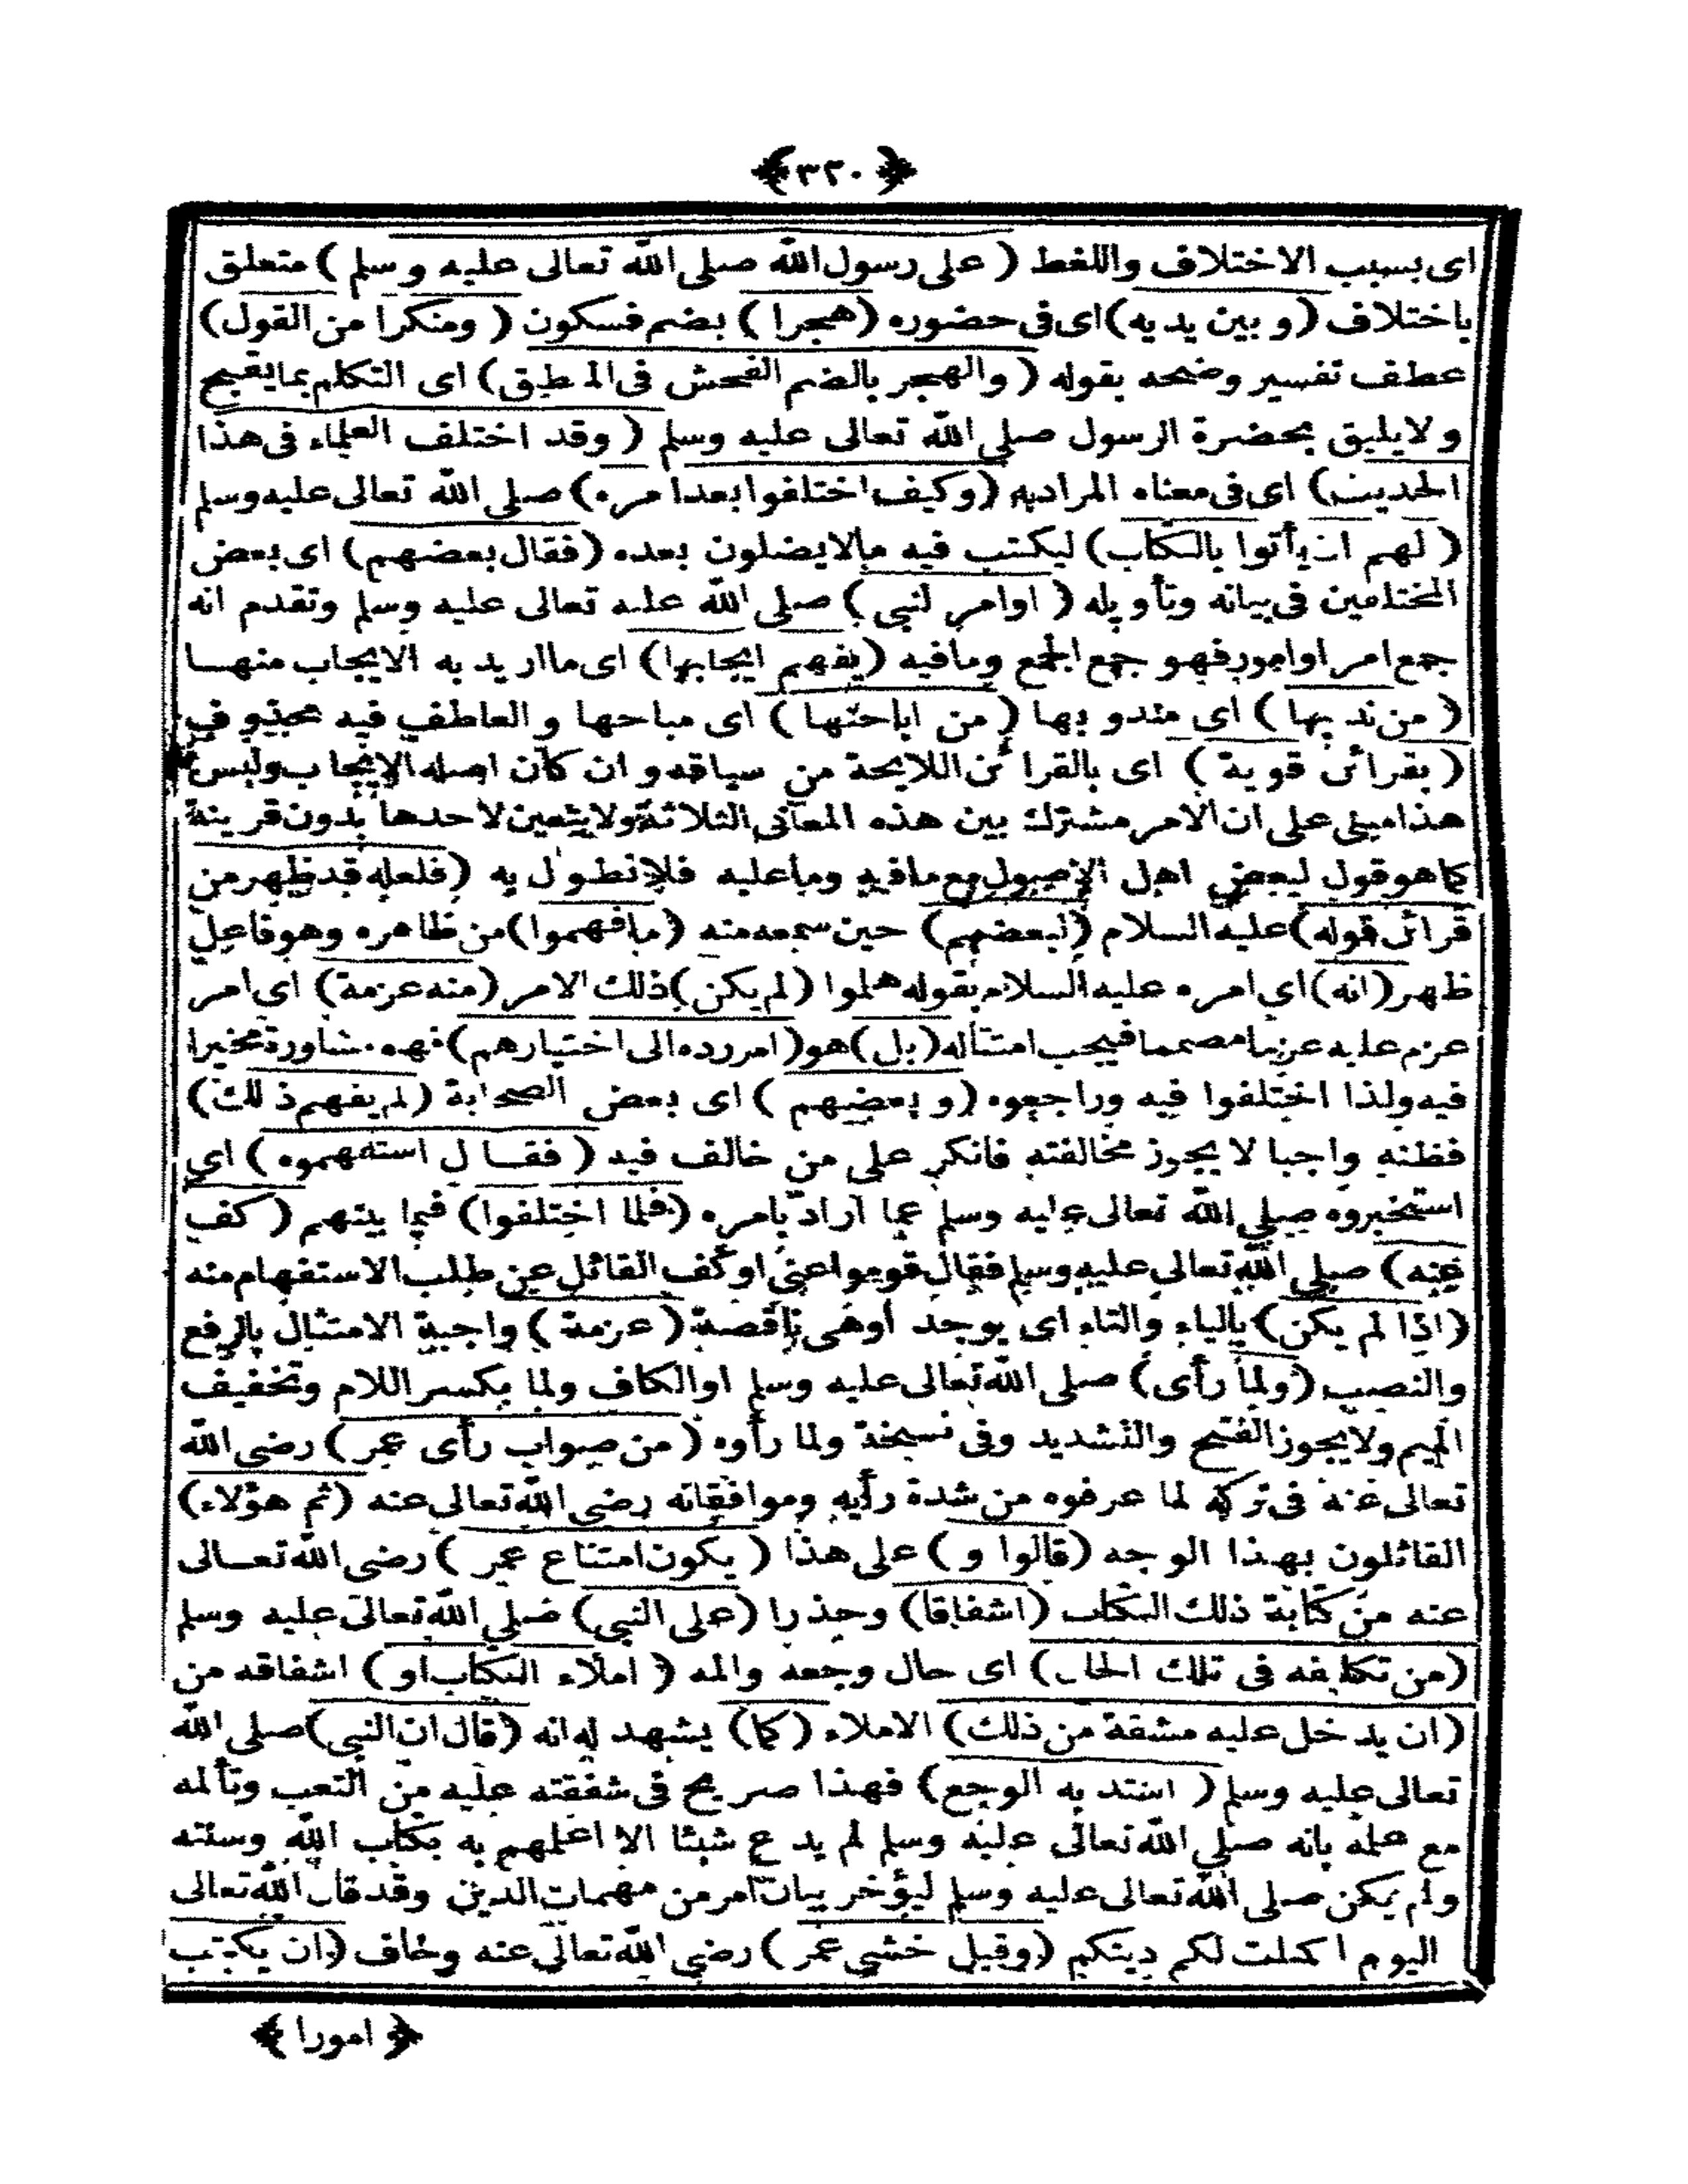 ﴿٣٢٠﴾
اى بسبب الاختلاف واللغط ( على رسول الله صلى الله تعالى عليه وسلم ) متعلق
باختلاف ( و بين يديه ) اى فى حضوره ( هجرا ) بضم فسكون ( ومنكرا من القول )
عطف تفسير وضحه بقوله ( والهجر بالضم الفحش فى المنطق ) اى التكلم بما يقبح
ولا يليق بحضرة الرسول صلى الله تعالى عليه وسلم ( وقد اختلف العلماء فى هذا
الحديث ) اى فى معناه المراد به ( وكيف اختلفوا بعد امره ) صلى الله تعالى عليه وسلم
( لهم ان يأتوا بالكتاب ) ليكتب فيه مالا يضلون بعده ( فقال بعضهم ) اى بعض
المختلفين فى بيانه وتأويله ( اوامر النبى ) صلى الله عليه تعالى عليه وسلم وتقدم انه
جمع امر او امور فهو جمع الجمع وما فيه ( يفهم ايجابها ) اى ما اريد به الايجاب منها
( من ندبها ) اى مندوبها ( من اباحتها ) اى مباحها والعاطف فيه محذوف
( بقرائن قوية ) اى بالقرائن اللايحة من سياقه وان كان اصله الايجاب وليس
هذا مبنى على ان الامر مشترك بين هذه المعانى الثلاثة ولا يتعين لاحدها بدون قرينة
كما هو قول لبعض اهل الاصول مع ما فيه وما عليه فلا نطول به ( فلعله قد ظهر من
قرائن قوله ) عليه السلام ( لبعضهم ) حين سمعه منه ( ما فهموا ) من ظاهره وهو فاعل
ظهر ( انه ) اى امره عليه السلام بقوله هلموا ( لم يكن ) ذلك الامر ( منه عزمة ) اى امر
عزم عليه عزما مصمما فيجب امتثاله ( بل ) هو ( امر رده الى اختيارهم ) فهو مشاورة مخيرا
فيه ولذا اختلفوا فيه وراجعوه ( و بعضهم ) اى بعض الصحابة ( لم يفهم ذلك )
فظنه واجبا لا يجوز مخالفته فانكر على من خالف فيه ( فقال استفهموه ) اى
استخبروه صلى الله تعالى عليه وسلم عما اراد بامره ( فلما اختلفوا ) فيما بينهم ( كف
عنه ) صلى الله تعالى عليه وسلم فقال قوموا عنى او كف القائل عن طلب الاستفهام منه
( اذا لم يكن ) بالياء والتاء اى يوجد اوهى ناقصة ( عزمة ) واجبة الامتثال بالرفع
والنصب ( ولما رأى ) صلى الله تعالى عليه وسلم او الكاف ولما بكسر اللام وتخفيف
الميم ولا يجوز الفتح والتشديد وفى نسخة ولما رأوه ( من صواب رأى عمر ) رضى الله
تعالى عنه فى تركه لما عرفوه من شدة رأيه وموافقاته رضى الله تعالى عنه ( ثم هؤلاء )
القائلون بهذا الوجه ( قالوا و ) على هذا ( يكون امتناع عمر ) رضى الله تعالى
عنه من كتابة ذلك الكتاب ( اشفاقا ) وحذرا ( على النبى ) صلى الله تعالى عليه وسلم
( من تكليفه فى تلك الحال ) اى حال وجعه والمه ( املاء الكتاب او ) اشفاقه من
( ان يدخل عليه مشقة من ذلك ) الاملاء ( كما ) يشهد له انه ( قال ان النبى ) صلى الله
تعالى عليه وسلم ( اشتد به الوجع ) فهذا صريح فى شفقته عليه من التعب وتألمه
مع علمه بانه صلى الله تعالى عليه وسلم لم يدع شيئا الا اعلمهم به بكتاب الله وسنته
ولم يكن صلى الله تعالى عليه وسلم ليؤخر بيان امر من مهمات الدين وقد قال الله تعالى
اليوم اكملت لكم دينكم ( وقيل خشى عمر ) رضى الله تعالى عنه وخاف ( ان يكتب
﴿ امورا ﴾